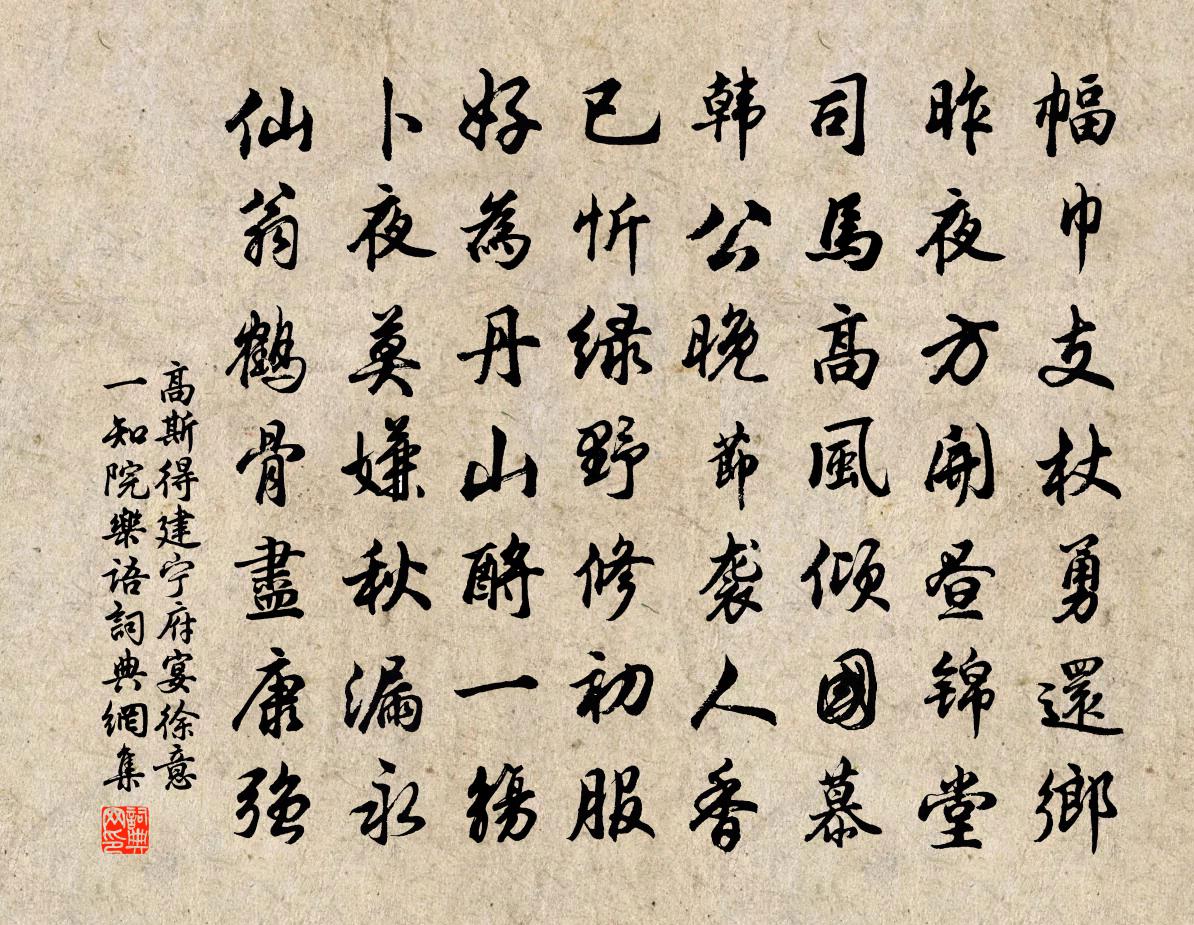 幅巾支杖勇還鄉
昨夜方開晝錦堂
司馬高風傾國慕
韩公晚節袭人香
已忻緑野修初服
好為丹山酹一觴
卜夜莫嫌秋漏永
仙翁鶴骨盡康强
高斯得建宁府宴徐意
一知院樂語詞典網集
詞典網印